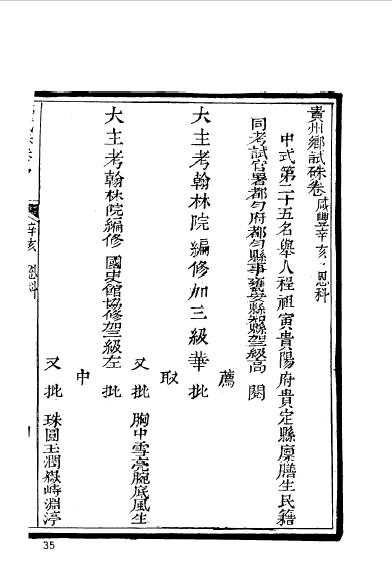 貴州鄉試硃卷咸豐辛亥恩科
中式第二十五名舉人程祖寅貴陽府貴定縣廩膳生民籍
同考試官署都勻府都勻縣事甕安縣知縣加三級高 閱
薦
大主考翰林院編修加三級華 批
取
又批 胸中雪亮腕底風生
大主考翰林院編修 國史館協修加一級左 批
中
又批 珠圓玉潤嶽峙淵渟
辛亥 恩科
35